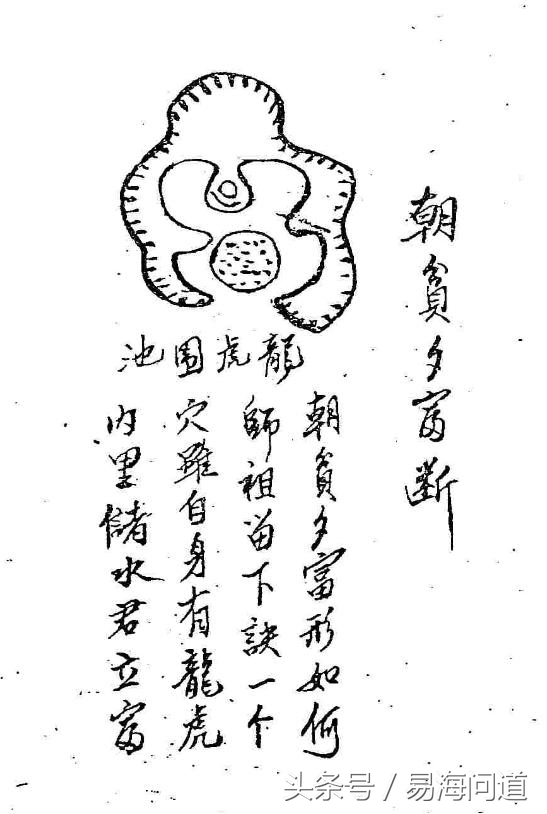 朝貧夕富斷
龍虎围池
朝貧夕富形如何
師祖留下訣一个
穴雖自身有龍虎
内里儲水君立富
头条号 / 易海问道